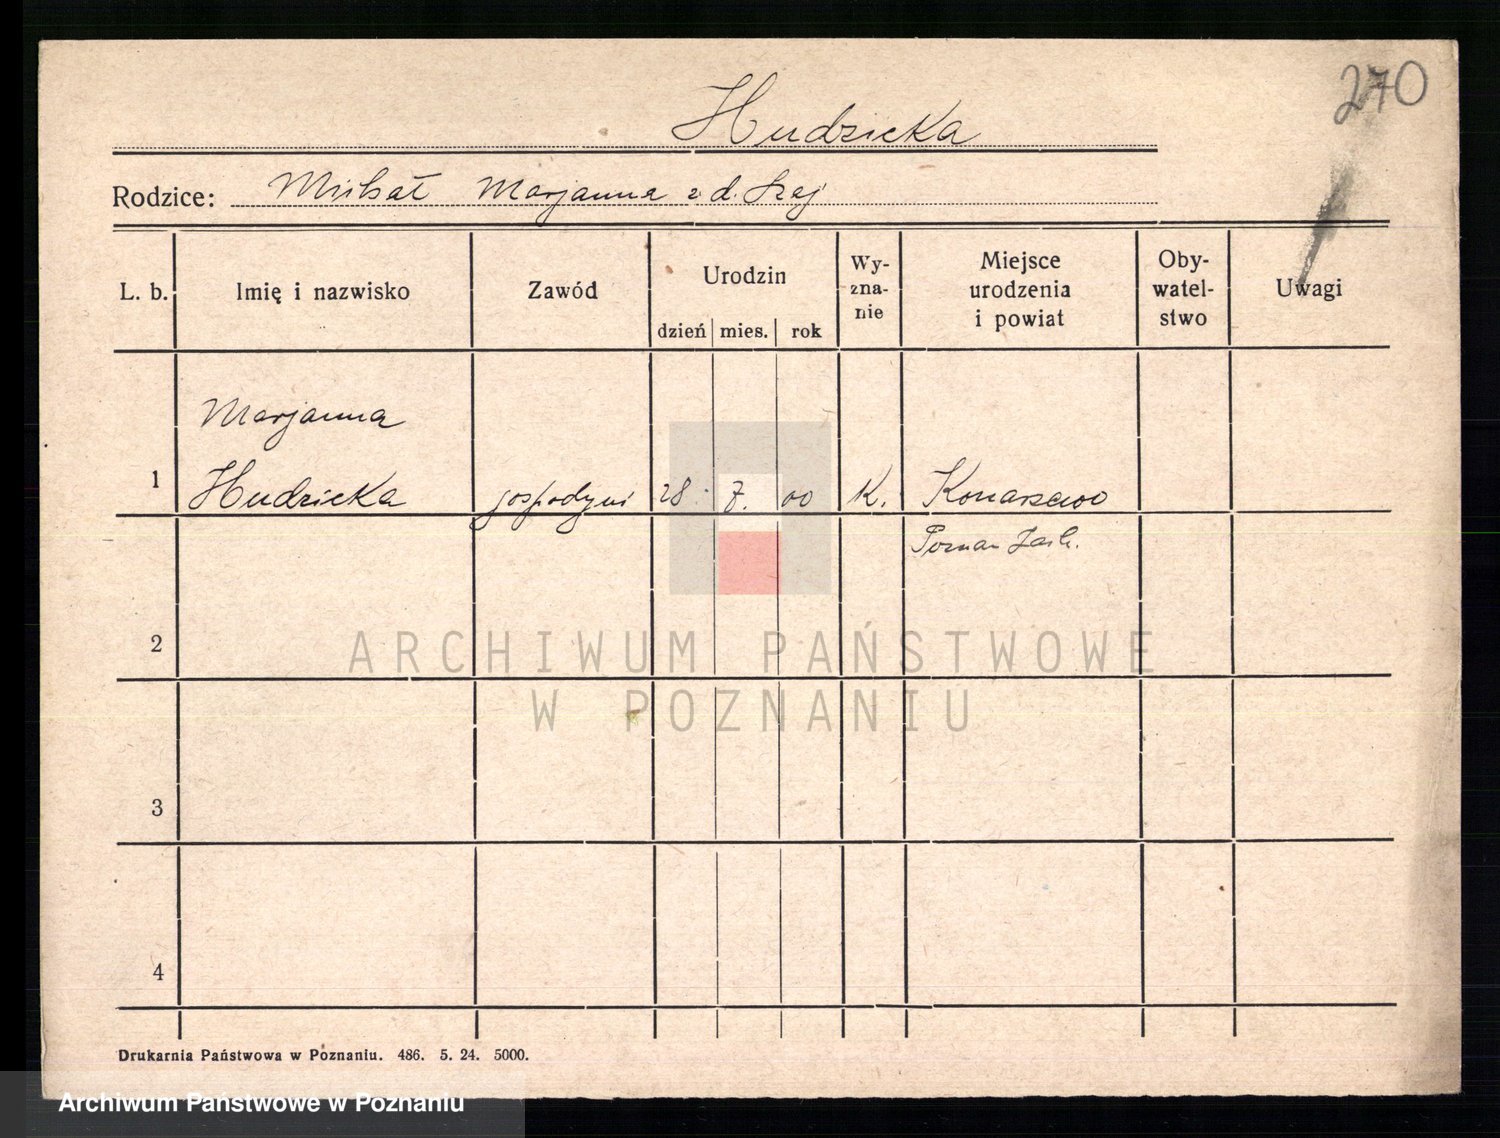 270
Hudzicka
Rodzice: Michał Marjanna z d. Szaj
L. b. Imię i nazwisko Zawód Urodzin dzień mies. rok Wy-zna-nie Miejsce urodzenia i powiat Oby-watel-stwo Uwagi
Marjanna
1 Hudzicka gospodyni 28. 7. 00 K. Konarzewo
Poznań Zach.
2
ARCHIWUM PAŃSTWOWE
W POZNANIU
3
4
Drukarnia Państwowa w Poznaniu. 486. 5. 24. 5000.
Archiwum Państwowe w Poznaniu